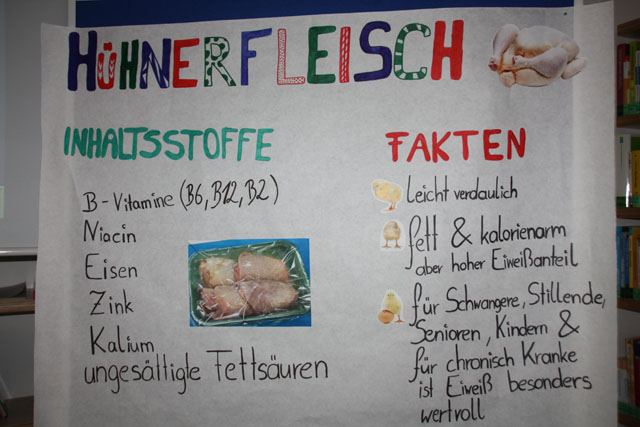 HÜHNERFLEISCH
INHALTSSTOFFE
B-Vitamine (B6, B12, B2)
Niacin
Eisen
Zink
Kalium
ungesältigle Fettsäuren
FAKTEN
leicht verdaulich
fett & kalorienarm
aber hoher Eiweißanteil
für Schwangere, Stillende,
Senioren, Kindern &
für chronisch Kranke
ist Eiweiß besonders
wertvoll